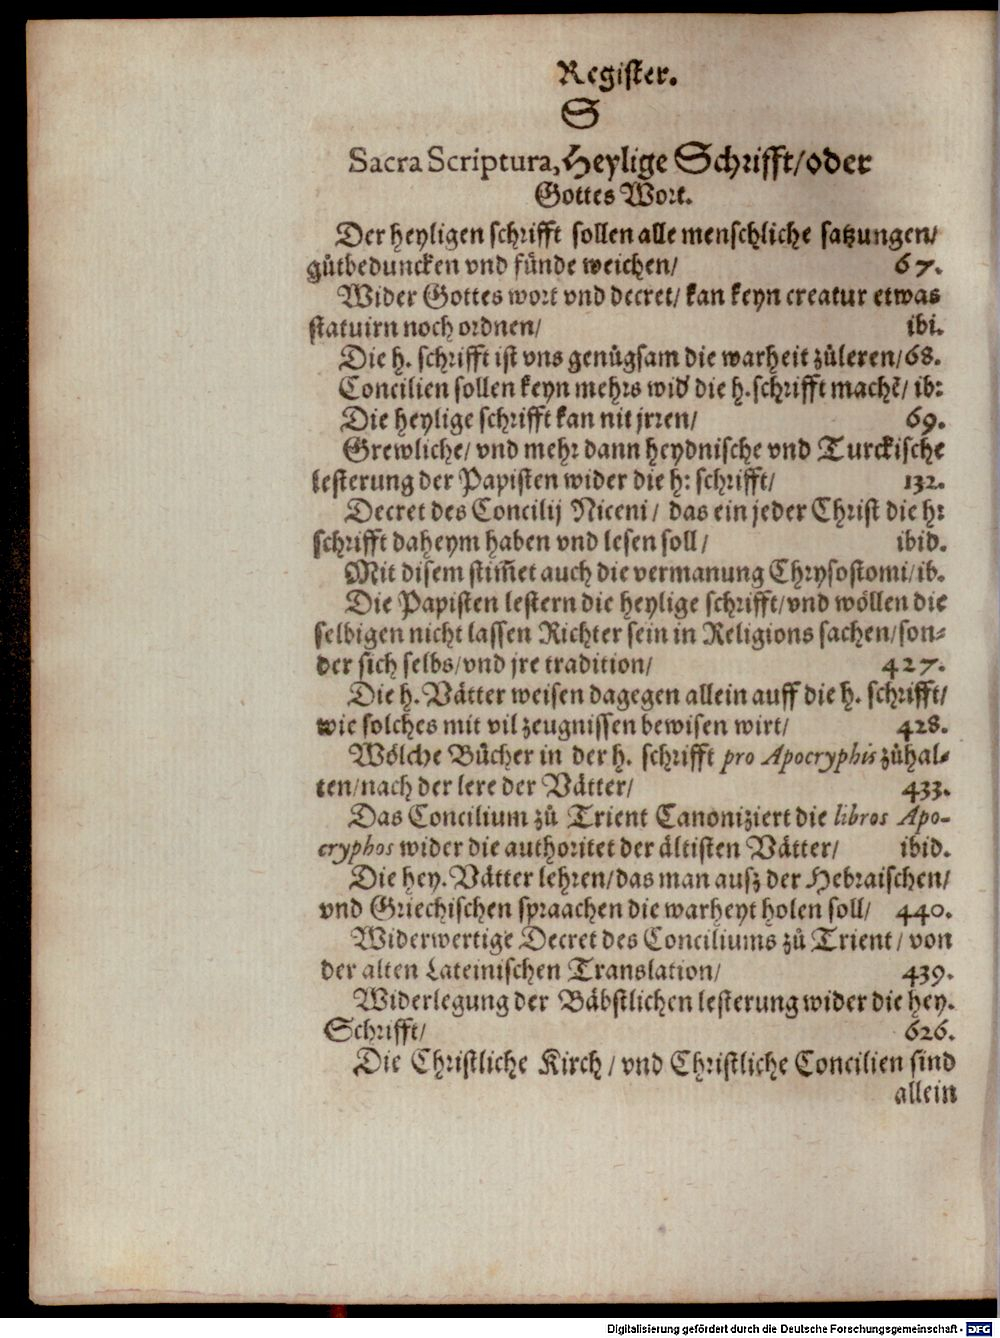 Register.
S
Sacra Scriptura, Heylige Schrifft/ oder
Gottes Wort.
Der heyligen schrifft sollen alle menschliche satzungen/
gůtbeduncken vnd fünde weichen/ 67.
Wider Gottes wort vnd decret/ kan keyn creatur etwas
statuirn noch ordnen/ ibi.
Die h. schrifft ist vns genůgsam die warheit zůleren/ 68.
Concilien sollen keyn mehrs wid' die h. schrifft machē/ ib:
Die heylige schrifft kan nit jrren/ 69.
Grewliche/ vnd mehr dann heydnische vnd Turckische
lesterung der Papisten wider die h: schrifft/ 132.
Decret des Concilij Niceni/ das ein jeder Christ die h:
schrifft daheym haben vnd lesen soll/ ibid.
Mit disem stim̄et auch die vermanung Chrysostomi/ ib.
Die Papisten lestern die heylige schrifft/ vnd wöllen die
selbigen nicht lassen Richter sein in Religions sachen/ son-
der sich selbs/ vnd jre tradition/ 427.
Die h. Vätter weisen dagegen allein auff die h. schrifft/
wie solches mit vil zeugnissen bewisen wirt/ 428.
Wölche Bücher in der h. schrifft pro Apocryphis zůhal-
ten/ nach der lere der Vätter/ 433.
Das Concilium zů Trient Canoniziert die libros Apo-
cryphos wider die authoritet der ältisten Vätter/ ibid.
Die hey. Vätter lehren/ das man ausz der Hebraischen/
vnd Griechischen spraachen die warheyt holen soll/ 440.
Widerwertige Decret des Conciliums zů Trient/ von
der alten Lateinischen Translation/ 439.
Widerlegung der Bäbstlichen lesterung wider die hey.
Schrifft/ 626.
Die Christliche Kirch/ vnd Christliche Concilien sind
allein
Digitalisierung gefördert durch die Deutsche Forschungsgemeinschaft - DFG